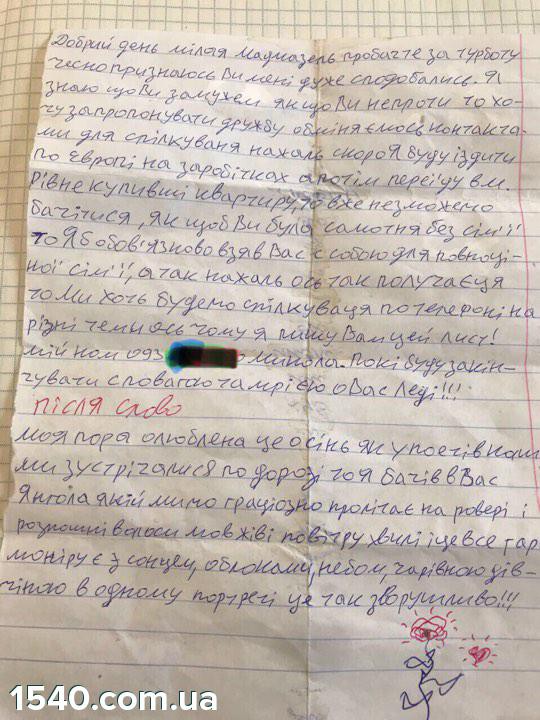 Добрий день мілая Мадмазель пробачте за турботу
чесно признаюсь Ви мені дуже сподобались. Я
знаю що Ви замужем якщо Ви непроти то хо-
чу запропонувати дружбу обміняємось контакта-
ми для спілкуваня нажаль скоро Я буду їздити
по Європі на заробітках а потім переїду в м.
рівне купивши квартиру, то вже незможемо
бачітися, як щоб Ви були самотня без сім'ї
то Я б обов'язково взяв Вас с собою для повноці-
ної сім'ї, а так нажаль ось так получаєця
то Ми хоть будемо спілкуваця по телефоні на
різні теми ось чому я пишу Вам цей лист!
мій ном 093 о Микола. Покі буду закін-
чувати с повагою та мрією о Вас Леді!!!
після слово
моя пора олюблена це осінь як у поетів коли
ми зустрічалися по дорозі то Я бачів в Вас
Янгола якій мимо граціозно пролітає на ровері і
розпошні волоси мов жіві повітру хвилі і це все гар
моніру є з сонцем, облоками, небом, чарівною дів-
чіною в одному портреті це так зворушливо!!!
1540.com.ua